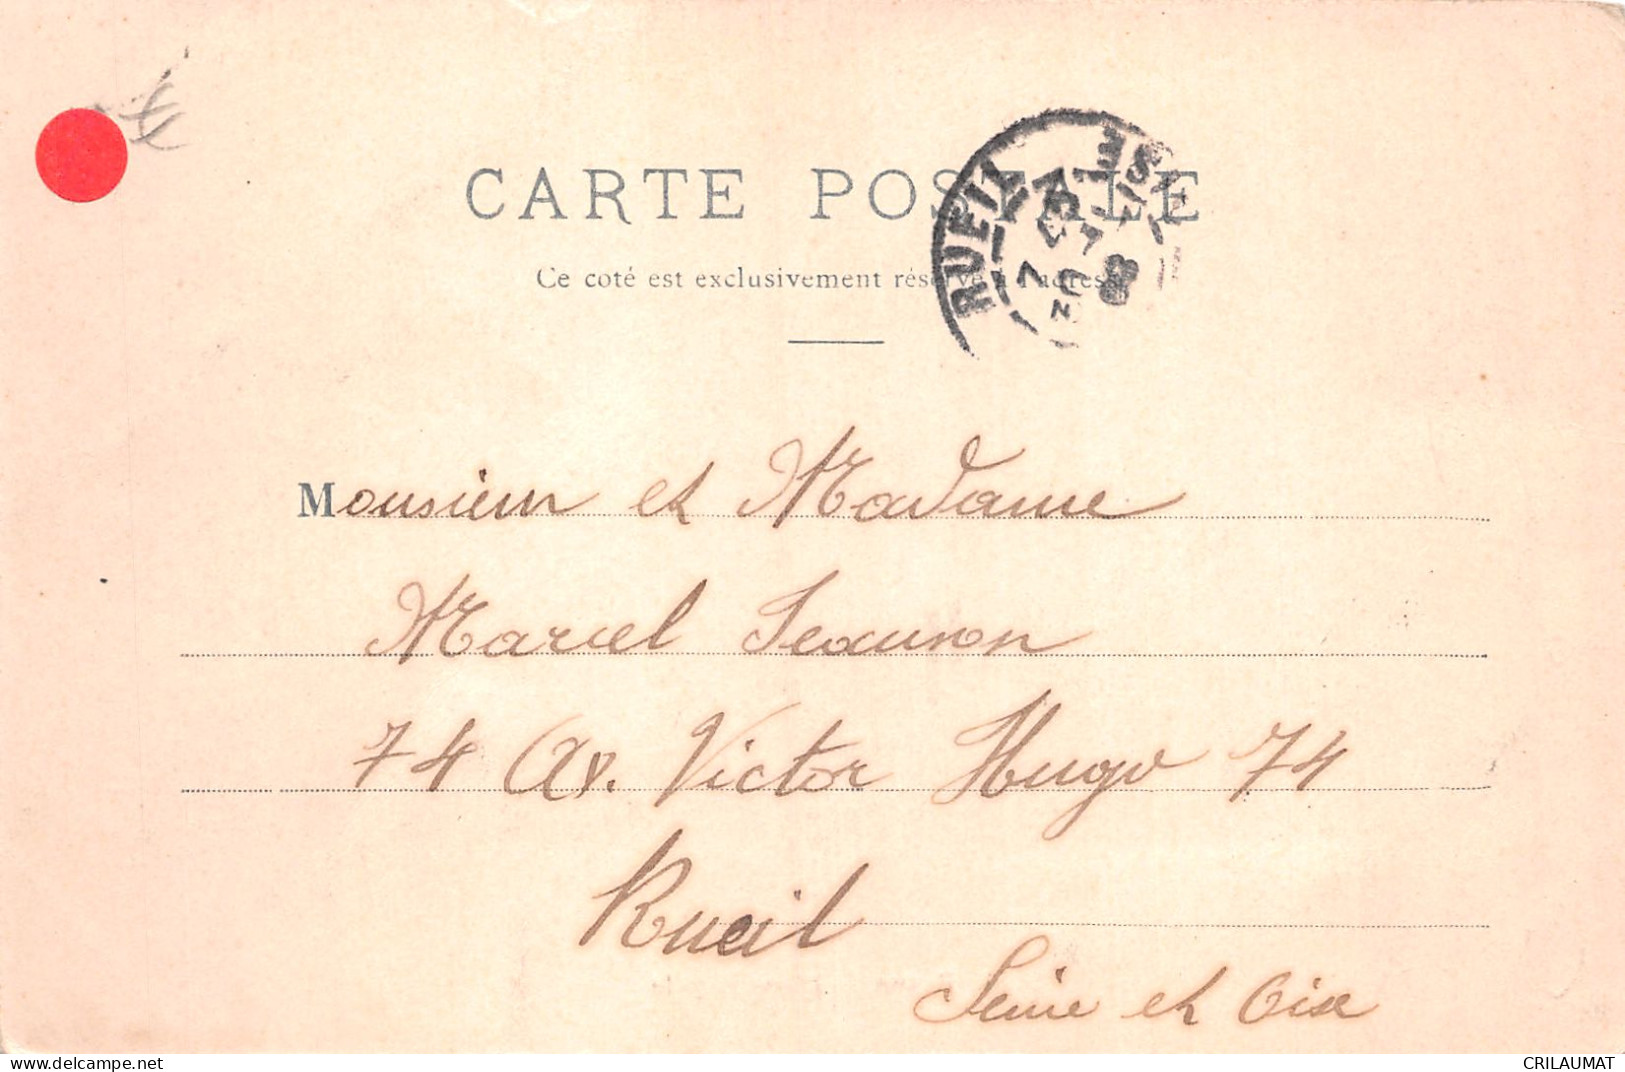 CARTE POSTALE
Ce coté est exclusivement réservé à l'adresse
RUEIL
Monsieur et Madame
Marcel Jeanson
74 Av. Victor Hugo 74
Rueil
Seine et Oise
www.delcampe.net
CRILAUMAT